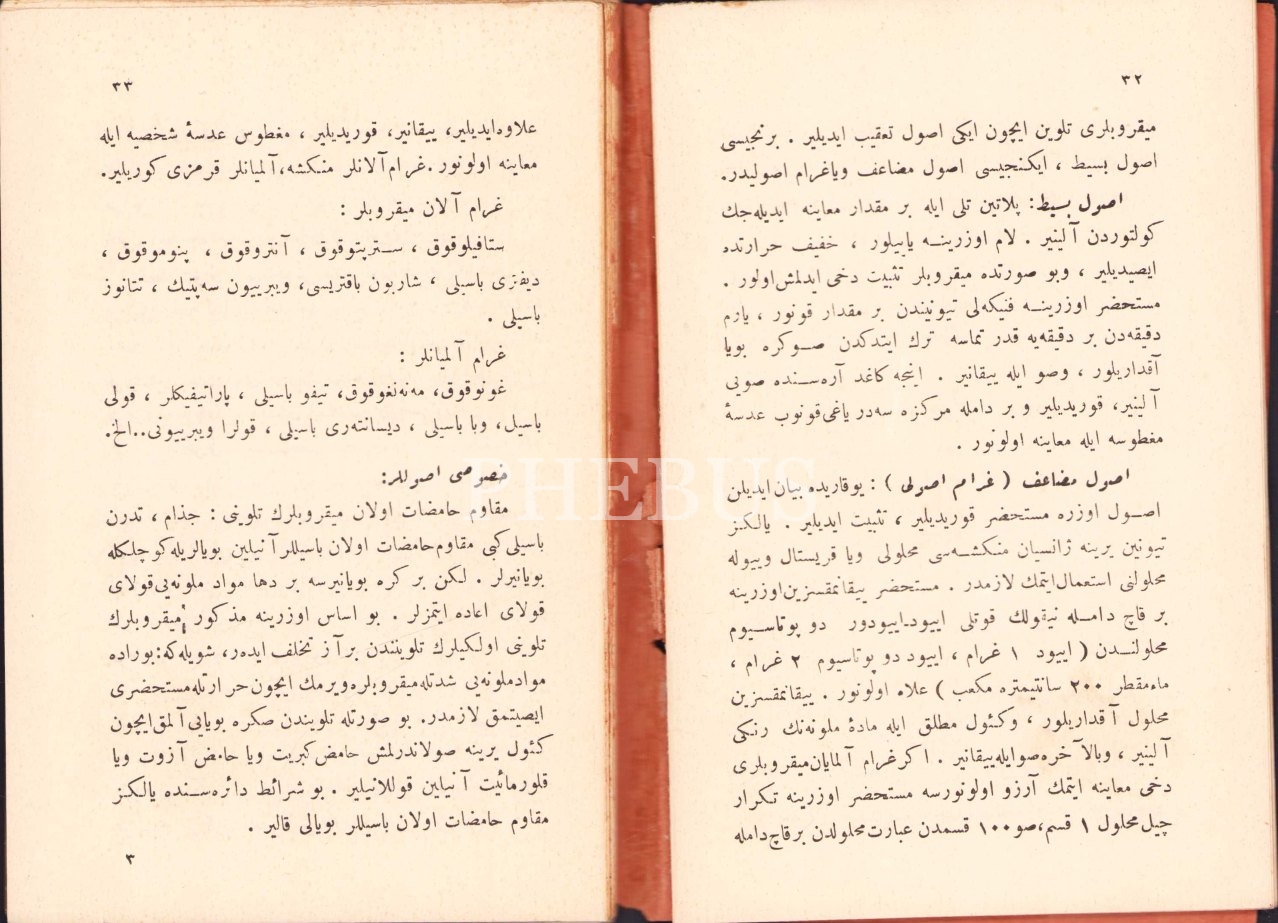 ٣٢
ميقروبلرى تلوين ايچون ايكى اصول تعقيب ايديلير . برنجيسى
اصول بسيط ، ايكنجيسى اصول مضاعف وياغرام اصوليدر.
اصول بسيط: پلاتين تلى ايله بر مقدار معاينه ايديله‌جك
كولتوردن آلينير . لام اوزرينه ياييلور ، خفيف حرارتده
ايصيديلير ، وبو صورتده ميقروبلر تثبيت دخى ايدلمش‌اولور .
مستحضر اوزرينه فنيكه‌لى تيونيندن بر مقدار قونور ، يارم
دقيقه‌دن بر دقيقه‌يه قدر تماسه ترك ايتدكدن صوكره بويا
آقداريلور ، وصو ايله ييقانير . اينجه كاغد آره‌سنده صويى
آلينير، قوريديلير و بر دامله مركزه سه‌در ياغى‌قونوب عدسۀ
مغطوسه ايله معاينه اولونور .
اصول مضاعف ( غرام اصولى ) : يوقاريده بيان ايديلن
اصول اوزره مستحضر قوريديلير ، تثبيت ايديلير . يالكز
تيونين يرينه ژانسيان منكشه‌سى محلولى ويا قريستال وييوله
محلولنى استعمال‌ايتمك لازمدر . مستحضر ييقانمقسزين‌اوزرينه
بر قاچ دامله نيقولك قوتلى اييود-اييودور دو پوتاسيوم
محلولندن ( اييود ١ غرام ، اييود دو پوتاسيوم ٢ غرام ،
ماءمقطر ٢٠٠ سانتيمتره مكعب ) علاه اولونور . ييقانمقسزين
محلول آقداريلور ، وكئول مطلق ايله مادۀ ملونه‌نك رنكى
آلينير ، وبالآخره‌صوايله‌ييقانير . اكرغرام آلمايان‌ميقروبلرى
دخى معاينه ايتمك آرزو اولونورسه مستحضر اوزرينه تكرار
چيل‌محلول ١ قسم،صو١٠٠ قسمدن عبارت‌محلولدن برقاچ‌دامله
٣٣
علاوه‌ايديلير، ييقانير، قوريديلير ، مغطوس عدسۀ شخصيه ايله
معاينه اولونور.غرام‌آلانلر منكشه،آلميانلر قرمزى كوريلير.
غرام آلان ميقروبلر :
ستافيلوقوق ، سترپتوقوق ، آنتروقوق ، پنوموقوق ،
ديفترى باسيلى ، شاربون باقتريسى، ويبرييون سه‌پتيك ، تتانوز
باسيلى .
غرام آلميانلر :
غونوقوق، مه‌نه‌نغوقوق، تيفو باسيلى ، پاراتيفيكلر ، قولى
باسيل، وبا باسيلى ، ديسانته‌رى باسيلى ، قولرا ويبرييونى..الخ.
خصوصى اصوللر:
مقاوم حامضات اولان ميقروبلرك تلوينى : جذام ، تدرن
باسيلى‌كبى مقاوم‌حامضات اولان باسيللرآنيلين بويالريله‌كوچلكله
بويانيرلر . لكن بر كره بويانيرسه بر دها مواد ملونه‌يى‌قولاى
قولاى اعاده ايتمزلر . بو اساس اوزرينه مذكور ميقروبلرك
تلوينى اولكيلرك تلوينندن برآز تخلف ايده‌ر، شويله‌كه:بوراده
موادملونه‌يى شدتله‌ميقروبلره‌ويرمك ايچون‌حرارتله‌مستحضرى
ايصيتمق لازمدر. بو صورتله تلويندن صكره بويايى‌آلمق‌ايچون
كئول يرينه صولاندرلمش حامض‌كبريت ويا حامض آزوت ويا
قلورمائيت آنيلين قوللانيلير . بو شرائط دائره‌سنده يالكز
مقاوم حامضات اولان باسيللر بويالى قالير .
٣
PHEBUS